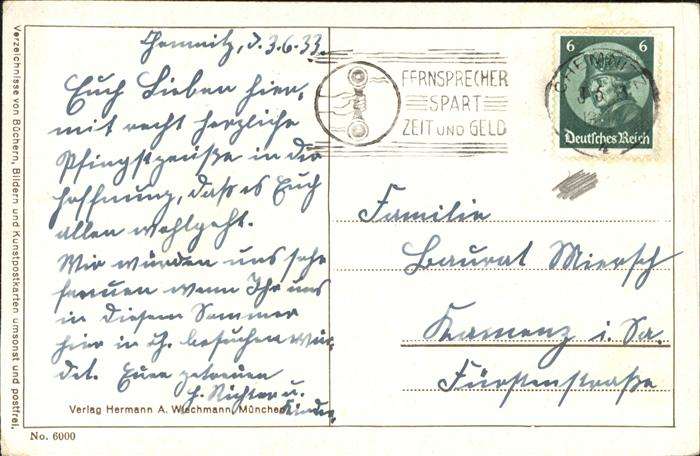 Chemnitz, d. 3.6.33.
Euch Lieben hier,
mit recht herzliche
Pfingstgrüße in der
Hoffnung, daß es Euch
allen wohlgeht.
Wir würden uns sehr
freuen wenn Ihr uns
in diesem Sommer
hier in Ch. besuchen wür-
det. Eure getreuen
H. Richter u.
Kinder.
Verlag Hermann A. Wiechmann, München
No. 6000
Verzeichnisse von Büchern, Bildern und Kunstpostkarten umsonst und postfrei.
FERNSPRECHER
SPART
ZEIT UND GELD
CHEMNITZ
6 6
Deutsches Reich
Familie
Baurat Miersch
Kamenz i. Sa.
Fürstenstraße